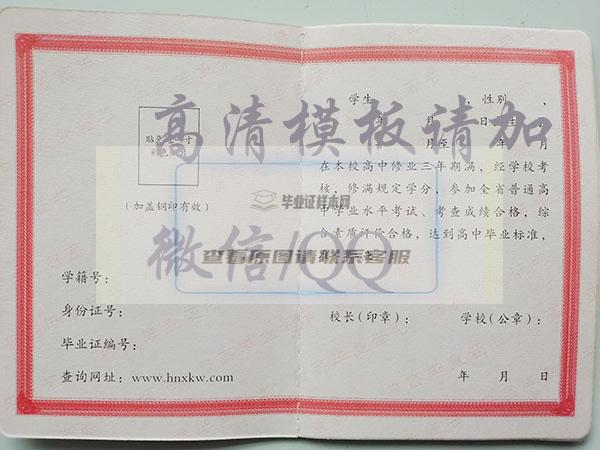 贴免冠二寸
彩色照片
(加盖钢印有效)
学籍号:
身份证号:
毕业证编号:
查询网址: www.hnxkw.com
学生 , 性别 ,
年 月 日 生,
年 月至 年 月
在本校高中修业三年期满, 经学校考
核, 修满规定学分, 参加全省普通高
中学业水平考试、考查成绩合格, 综
合素质评价合格, 达到高中毕业标准,
校长(印章): 学校(公章):
年 月 日
高清模板请加
微信/QQ
毕业证样本网
查看原图请联系客服